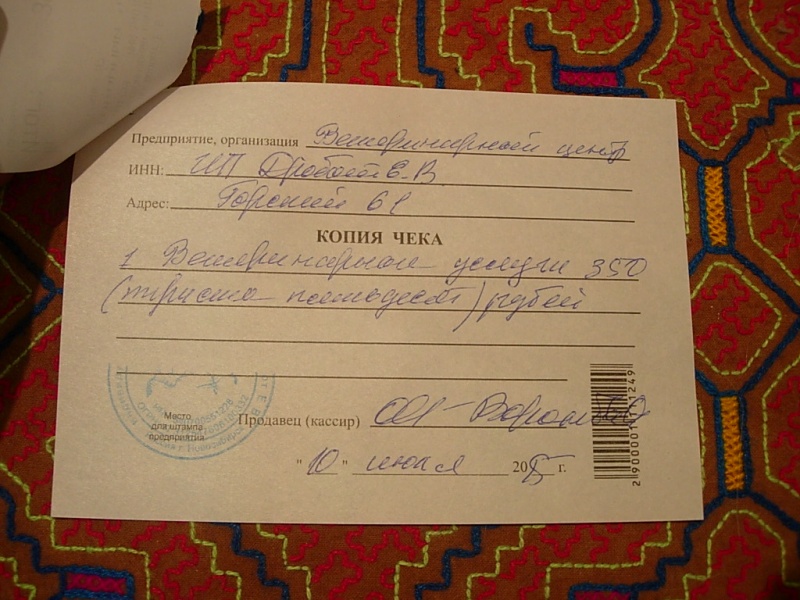 Предприятие, организация Ветеринарный центр
ИНН: ИП Дробот Е.В.
Адрес: Горский 61
КОПИЯ ЧЕКА
1 Ветеринарные услуги 350
(триста пятьдесят) рублей
Место
для штампа
предприятия
г. Новосибирск
Продавец (кассир)
"10" июля 20 г.
2 90000 249